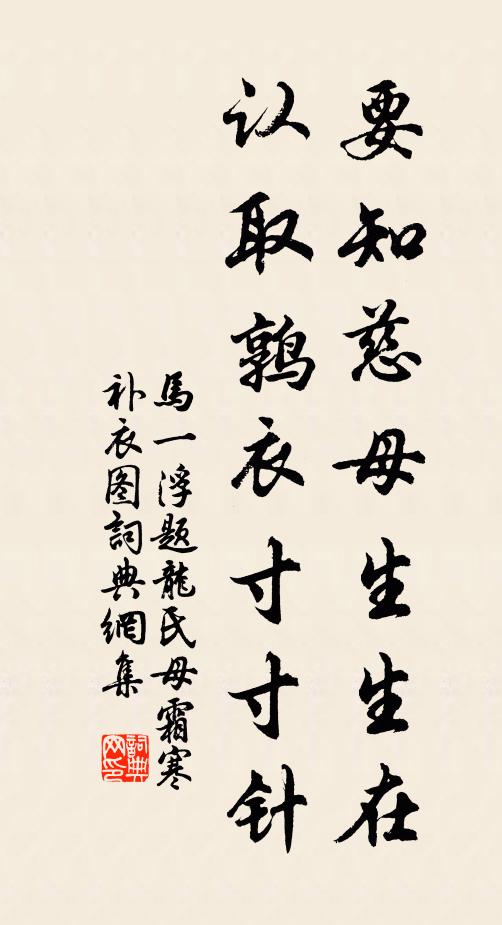 要知慈母生生在
认取鹑衣寸寸针
馬一浮题龍氏母霜寒
补衣图詞典網集
詞典
网印